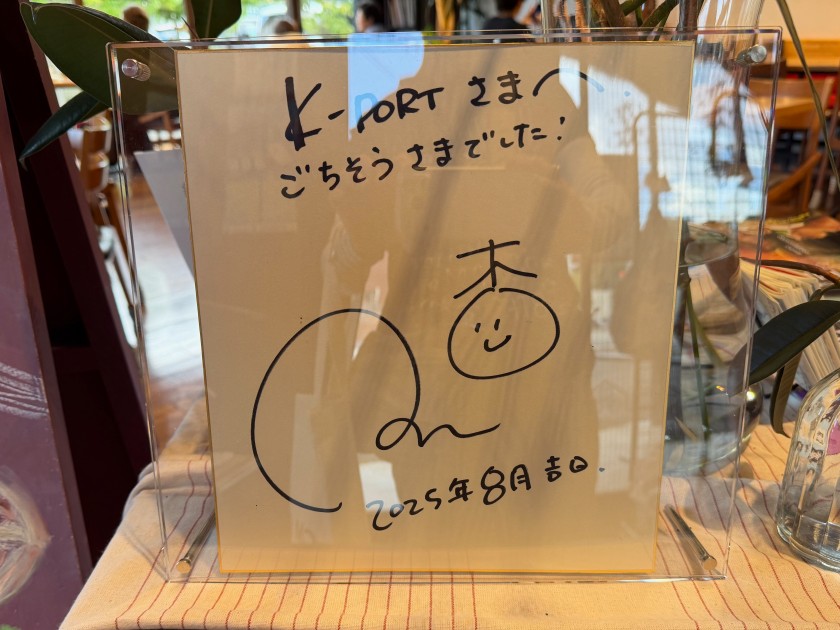 K-PORT さまへ
ごちそうさまでした!
杏
2025年8月吉日.